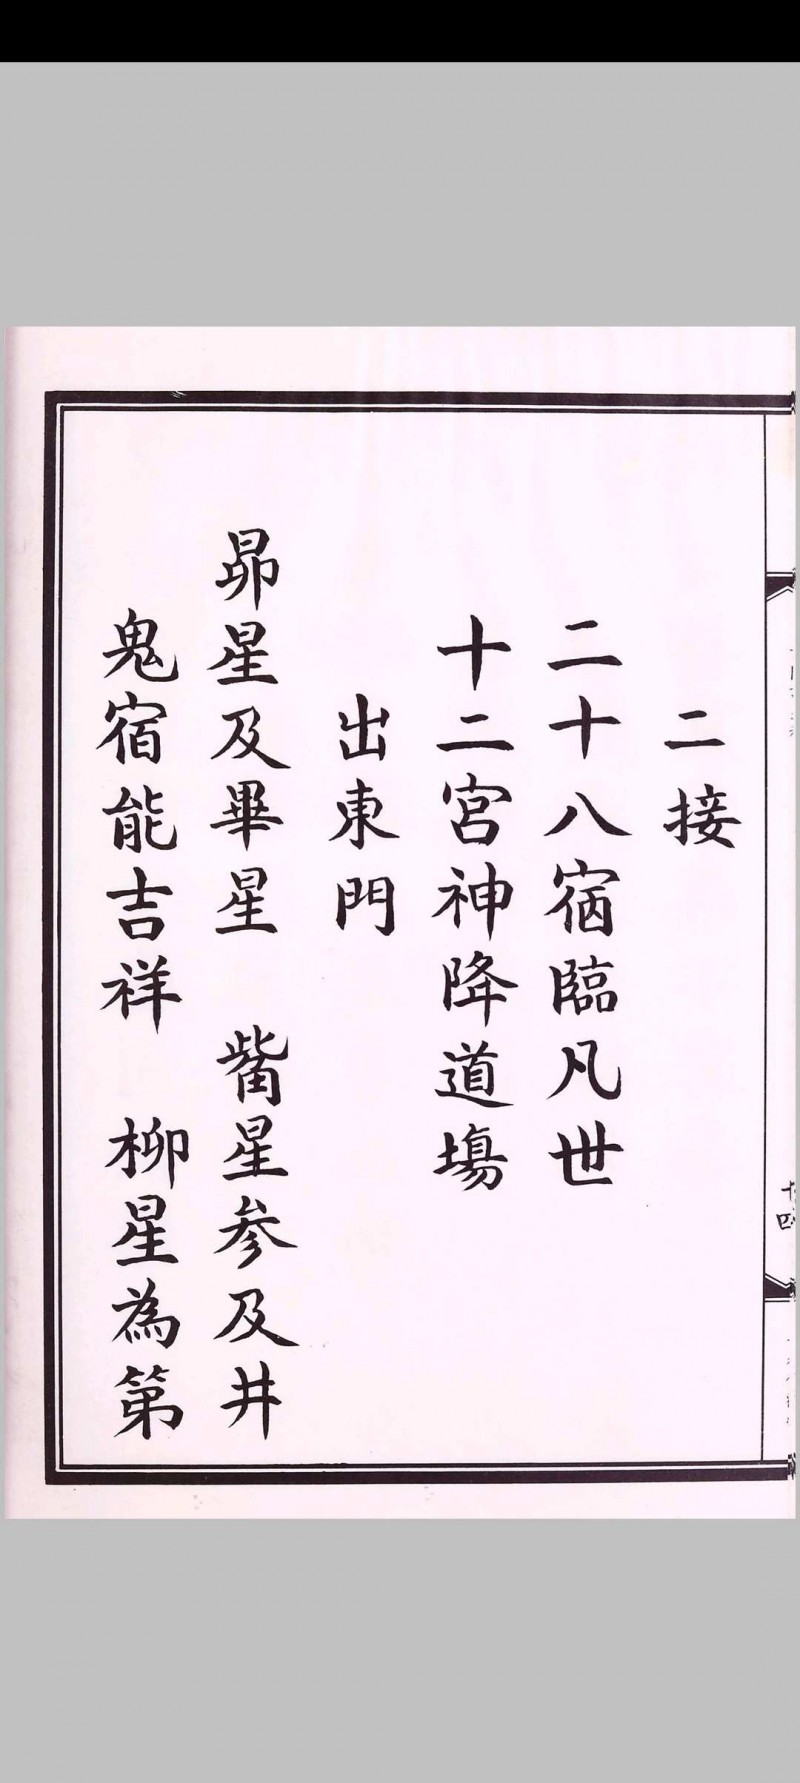 二接
二十八宿臨凡世
十二宮神降道場
出東門
昴星及畢星　觜星参及井
鬼宿能吉祥　柳星為第
十四